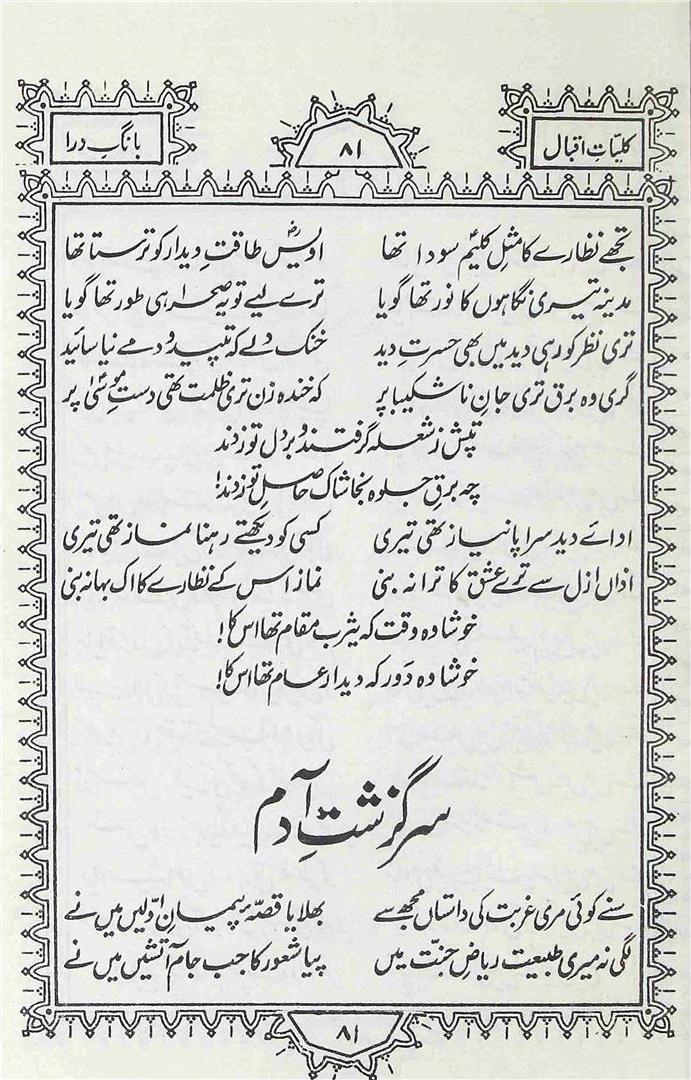 کلیّاتِ اقبال ۸۱ بانگِ درا
تجھے نظارے کا مثلِ کلیمؑ سودا تھا اویسؓ طاقتِ دیدار کو ترستا تھا
مدینہ تیری نگاہوں کا نور تھا گویا ترے لیے تو یہ صحرا ہی طور تھا گویا
تری نظر کو رہی دید میں بھی حسرتِ دید خنک دلے کہ تپید و دمے نیاسائید
گری وہ برق تری جانِ ناشکیبا پر کہ خندہ زن تری ظلمت تھی دستِ موسیٰؑ پر
تپش ز شعلہ گرفتند و بر دلِ تو زدند
چہ برقِ جلوہ بخاشاکِ حاصلِ تو زدند!
ادائے دید سراپا نیاز تھی تیری کسی کو دیکھتے رہنا نماز تھی تیری
اذاں ازل سے ترے عشق کا ترانہ بنی نماز اس کے نظارے کا اک بہانہ بنی
خوشا وہ وقت کہ یثرب مقام تھا اس کا!
خوشا وہ دَور کہ دیدار عام تھا اس کا!
سرگزشتِ آدم
سنے کوئی مری غربت کی داستاں مجھ سے بھلایا قصّۂ پیمانِ اوّلیں میں نے
لگی نہ میری طبیعت ریاضِ جنّت میں پیا شعور کا جب جامِ آتشیں میں نے
۸۱